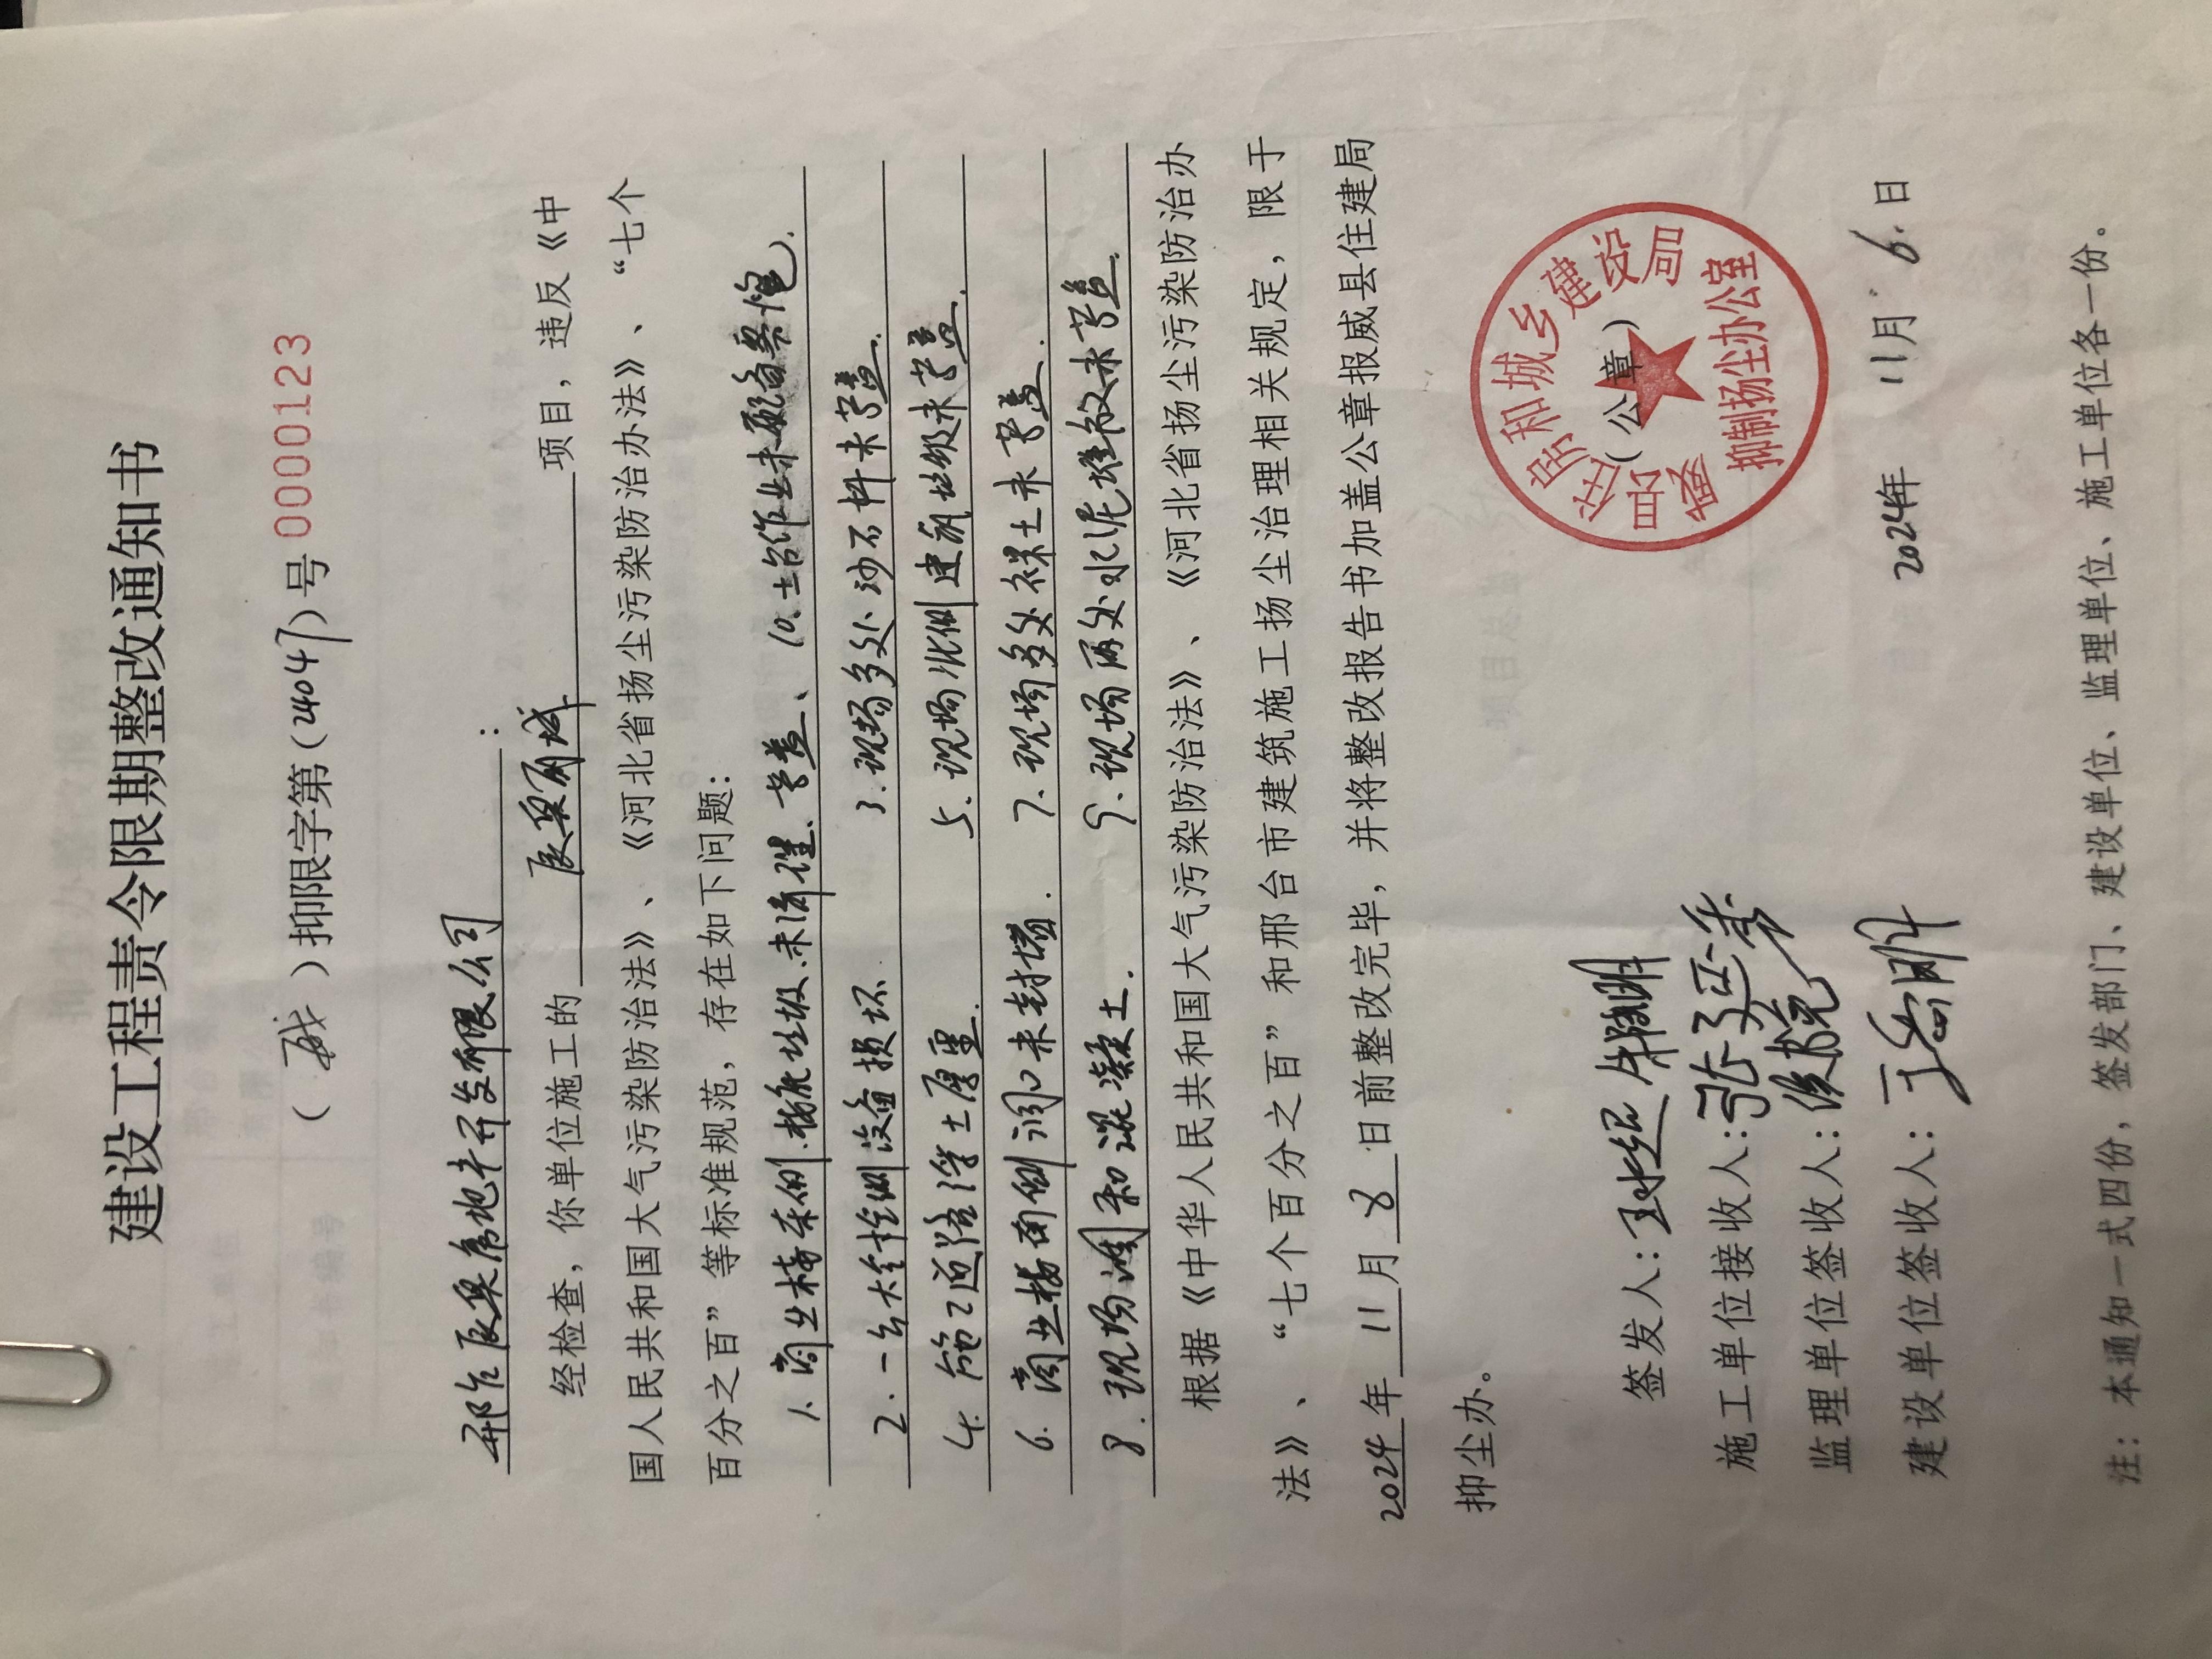 建设工程责令限期整改通知书
（威）抑限字第（24047）号0000123
邢台辰奥房地产开发有限公司：
经检查，你单位施工的辰奥丽城项目，违反《中
国人民共和国大气污染防治法》、《河北省扬尘污染防治办法》、“七个
百分之百”等标准规范，存在如下问题：
1.商业楼东侧.垃圾.未清理、苫盖、10.土台作业未配备雾炮).
2.一台大型设备损坏 3.现场多处沙石料未苫盖.
4.施工道路浮土厚重. 5.现场北侧建筑垃圾未苫盖.
6.商业楼南侧洞口未封堵. 7.现场多处裸土未苫盖.
8.现场混凝土. 9.现场两处水泥堆放未苫盖.
根据《中华人民共和国大气污染防治法》、《河北省扬尘污染防治办
法》、“七个百分之百”和邢台市建筑施工扬尘治理相关规定，限于
2024年11月8日前整改完毕，并将整改报告书加盖公章报威县住建局
抑尘办。
威县住房和城乡建设局
（公章）
抑制扬尘办公室
签发人：
施工单位接收人：张
监理单位签收人：侯
建设单位签收人：
2024年11月6日
注：本通知一式四份，签发部门、建设单位、监理单位、施工单位各一份。